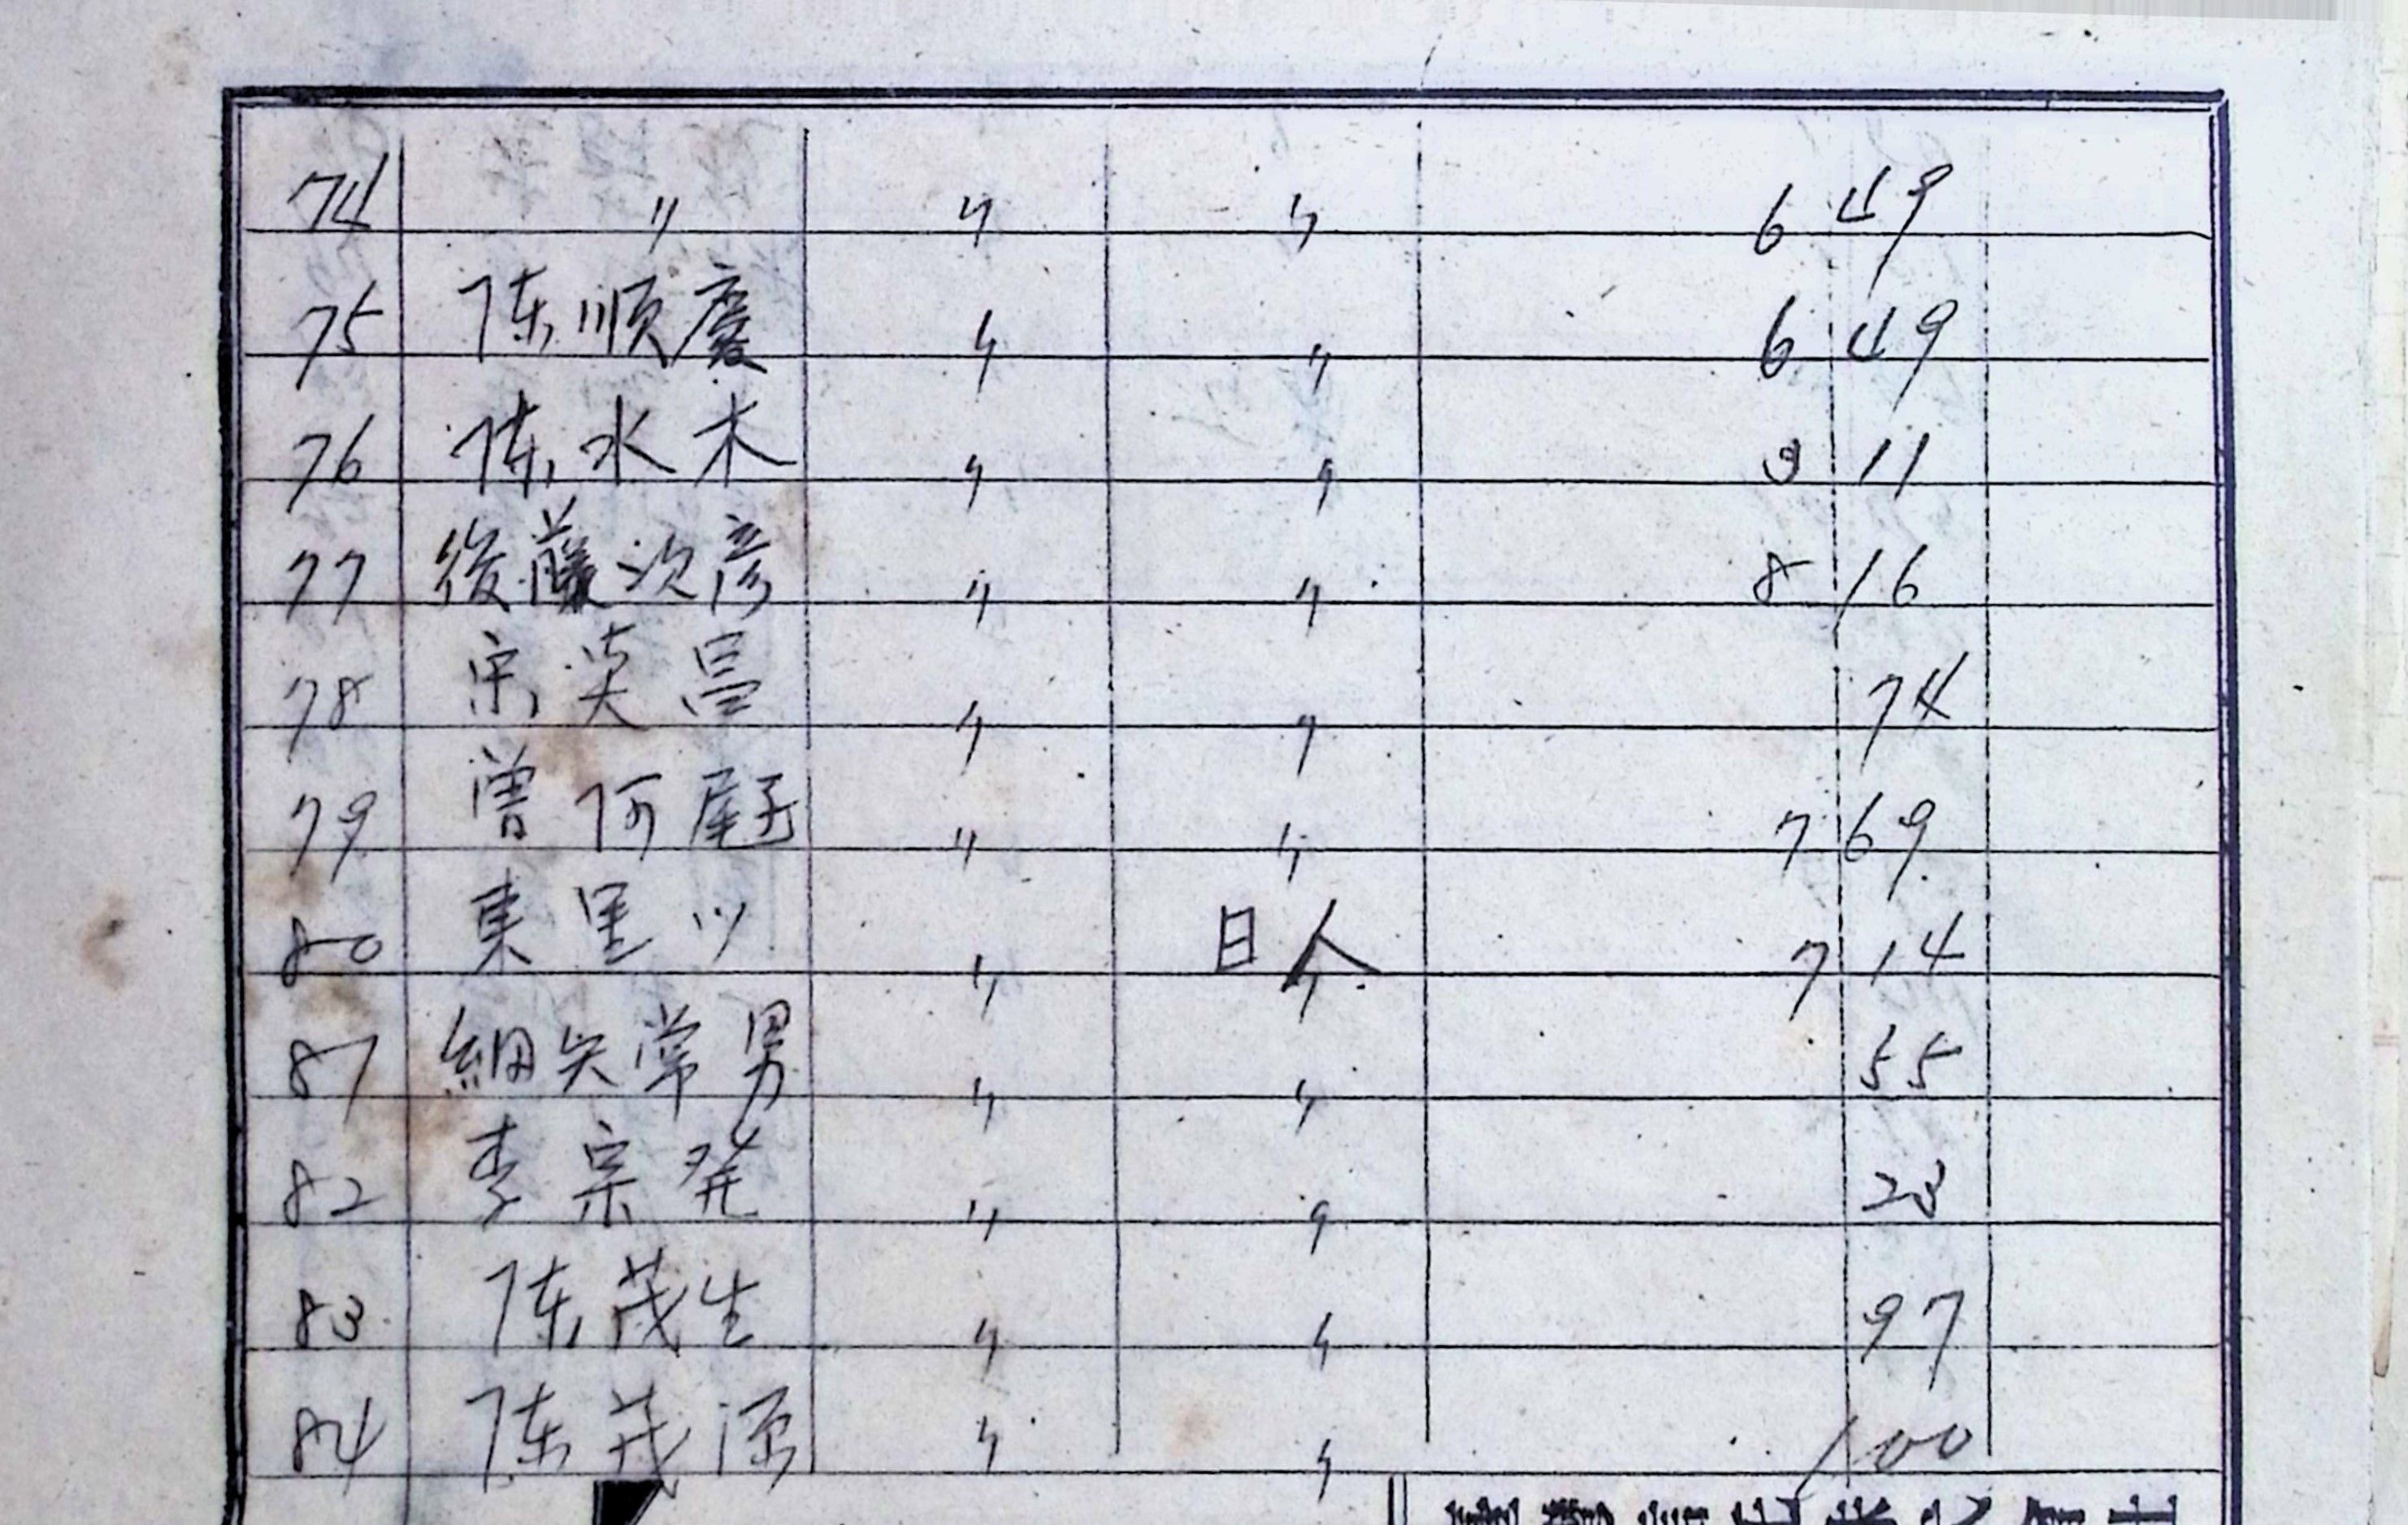 74 〃 〃 〃 6 49
75 陈順慶 〃 〃 6 49
76 陈水木 〃 〃 3 11
77 後藤次彦 〃 〃 8 16
78 宋英昌 〃 〃 74
79 曽阿 〃 〃 7 69
80 東里 〃 日人 7 14
81 細矢常男 〃 〃 55
82 李宗発 〃 〃 23
83 陈茂生 〃 〃 97
84 陈茂源 〃 〃 1 00